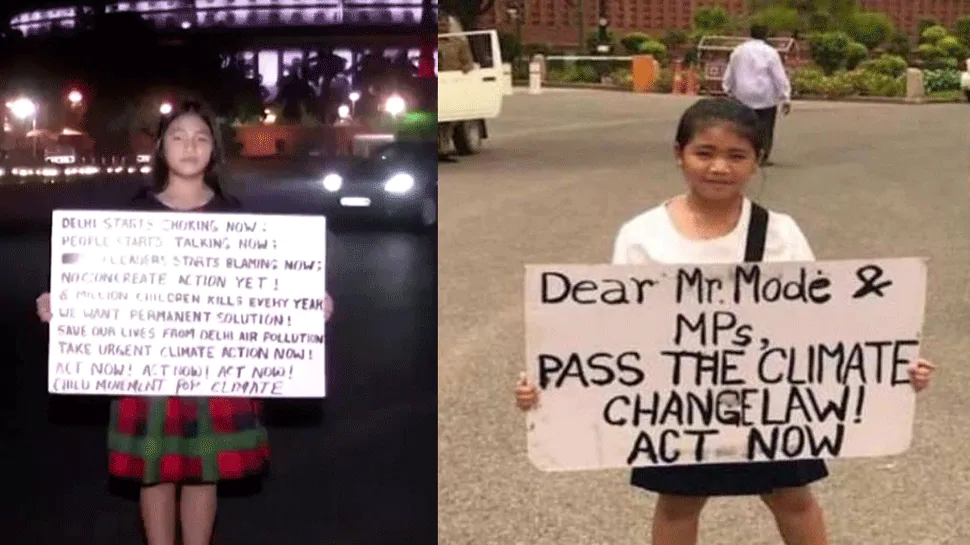 DELHI STARTS CHOKING NOW;
PEOPLE STARTS TALKING NOW;
LEADERS STARTS BLAMING NOW;
NO CONCREATE ACTION YET!
6 MILLION CHILDREN KILLS EVERY YEAR
WE WANT PERMANENT SOLUTION!
SAVE OUR LIVES FROM DELHI AIR POLLUTION
TAKE URGENT CLIMATE ACTION NOW!
ACT NOW! ACT NOW! ACT NOW!
CHILD MOVEMENT FOR CLIMATE
Dear Mr. Mode &
MPs,
PASS THE CLIMATE
CHANGE LAW!
ACT NOW